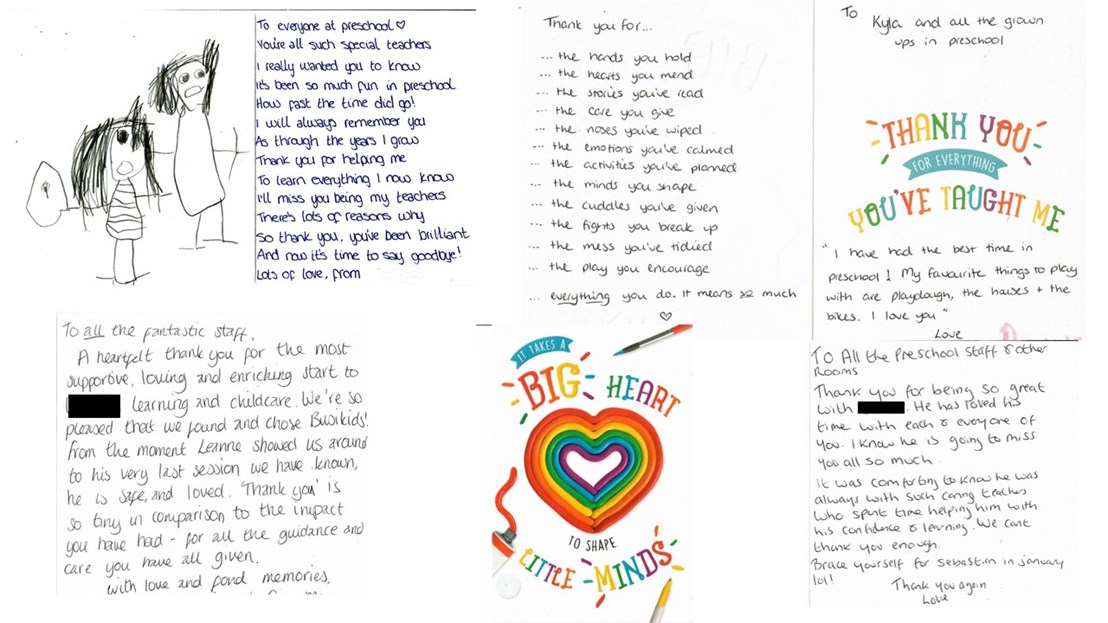 To everyone at preschool ♡
You're all such special teachers
I really wanted you to know
It's been so much fun in preschool
How fast the time did go!
I will always remember you
As through the years I grow
Thank you for helping me
To learn everything I now know
I'll miss you being my teachers
There's lots of reasons why
So thank you, you've been brilliant
And now it's time to say goodbye!
Lots of love, from
Thank you for...
... the hands you hold
... the hearts you mend
... the stories you've read
... the care you give
... the noses you've wiped
... the emotions you've calmed
... the activities you've planned
... the minds you shape
... the cuddles you've given
... the fights you break up
... the mess you've tidied
... the play you encourage
... everything you do. It means so much
♡
To
Kyla and all the grown
ups in preschool
THANK YOU
FOR EVERYTHING
YOU'VE TAUGHT ME
"I have had the best time in
preschool! My favourite things to play
with are playdough, the houses + the
bikes. I love you"
Love
To all the fantastic staff,
A heartfelt thank you for the most
supportive, loving and enriching start to
learning and childcare. We're so
pleased that we found and chose Bwikids!
From the moment Leanne showed us around
to his very last session we have known,
he is safe, and loved. 'Thank you' is
so tiny in comparison to the impact
you have had - for all the guidance and
care you have all given.
with love and fond memories,
IT TAKES A
BIG HEART
TO SHAPE
LITTLE MINDS
To All the Preschool Staff & other
Rooms
Thank you for being so great
with . He has loved his
time with each & everyone of
you. I know he is going to miss
you all so much.
It was comforting to know he was
always with such caring teachers
who spent time helping him with
his confidence & learning. We cant
thank you enough.
Brace yourself for Sebastian in january
lol!
Thank you again
Love